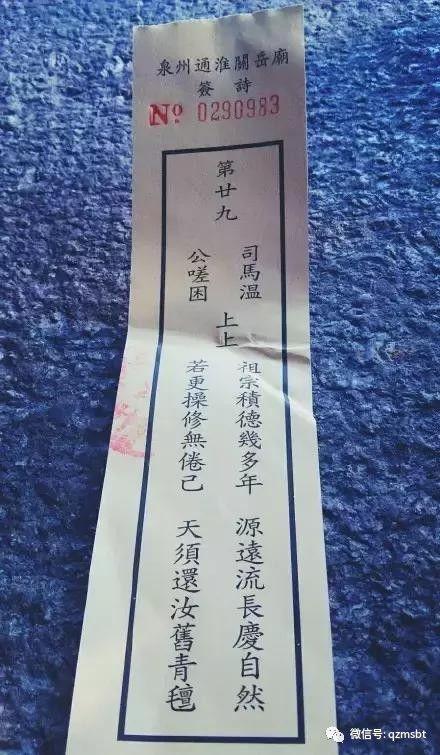 泉州通淮關岳廟
簽詩
No 0290983
第廿九
司馬溫
公嗟困
上上
祖宗積德幾多年 源遠流長慶自然
若更操修無倦己 天須還汝舊青氈
微信号: qzmsbt